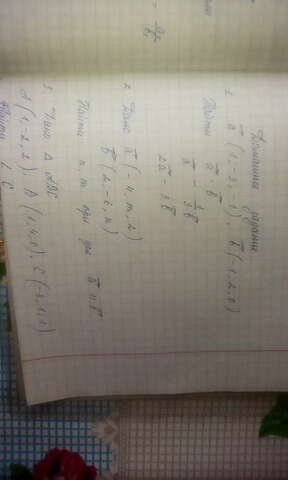 Домашнее задание
1. a⃗ (1, -3, -1), b⃗ (-1, 2, 0)
Найти a⃗ · b⃗
a⃗ - 1/3 b⃗
2a⃗ - 3b⃗
= a₂/b₁
2. Дано a⃗ (-4, m, 2)
b⃗ (2, -6, n)
Найти n, m при усл a⃗ || b⃗
3. Дано Δ ABC
A (1, -2, 2); B (1, 4, 0), C (-3, 1, 1).
Найти ∠ C